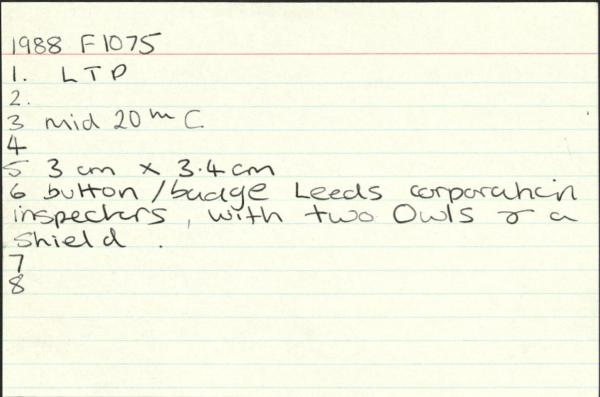 1988 F1075
1. LTP
2.
3 mid 20th C.
4
5 3 cm x 3.4 cm
6 button/badge Leeds corporation
inspectors, with two Owls & a
Shield.
7
8